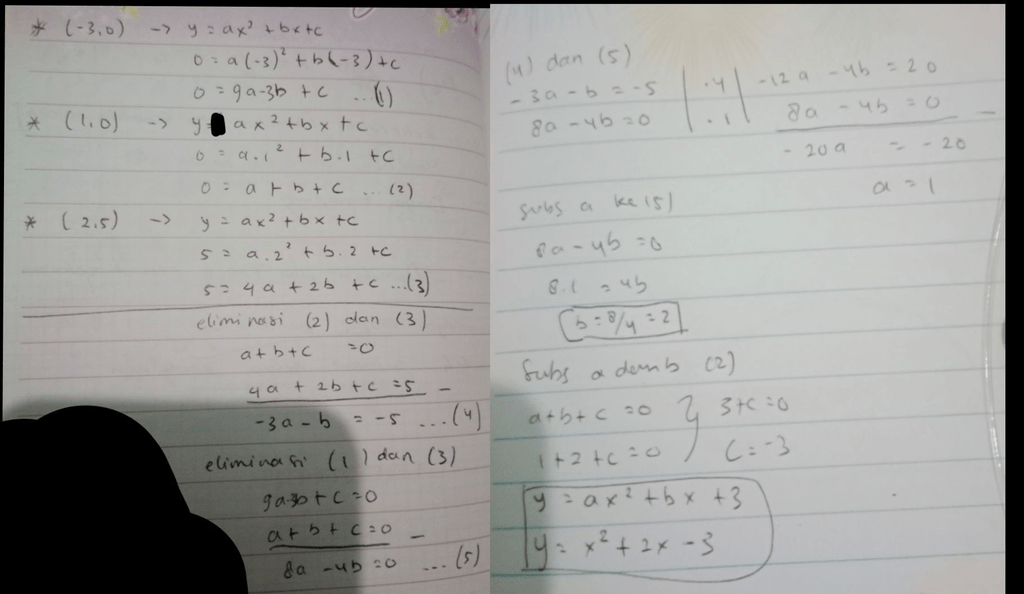 * (-3,0) -> y = ax² + bx + c
0 = a(-3)² + b(-3) + c
0 = 9a-3b + c ...(1)
* (1,0) -> y = ax² + bx + c
0 = a.1² + b.1 + c
0 = a + b + c ...(2)
* (2,5) -> y = ax² + bx + c
5 = a.2² + b.2 + c
5 = 4a + 2b + c ...(3)
eliminasi (2) dan (3)
a+b+c =0
4a + 2b + c = 5 -
-3a - b = -5 ...(4)
eliminasi (1) dan (3)
9a-3b+c=0
a+b+c=0 -
8a - 4b = 0 ...(5)
(4) dan (5)
-3a - b = -5 | .4 | -12a - 4b = 20
8a - 4b = 0 | .1 | 8a - 4b = 0 -
-20a = -20
a = 1
Subs a ke (5)
8a - 4b = 0
8.1 = 4b
b = 8/4 = 2
Subs a dan b (2)
a+b+c = 0 } 3+c=0
1+2+c=0 c=-3
y = ax² + bx + 3
y = x² + 2x - 3